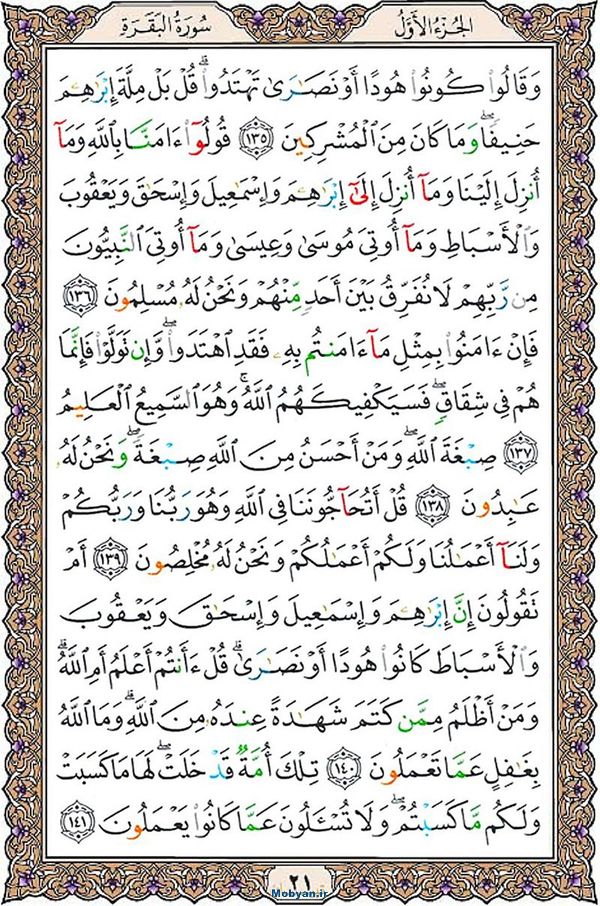 الجُزءُ الأَوَّلُ
سُورَةُ البَقَرَةِ
وَقَالُوا۟ كُونُوا۟ هُودًا أَوْ نَصَـٰرَىٰ تَهْتَدُوا۟ ۗ قُلْ بَلْ مِلَّةَ إِبْرَٰهِـۧمَ
حَنِيفًا ۖ وَمَا كَانَ مِنَ ٱلْمُشْرِكِينَ ١٣٥ قُولُوٓا۟ ءَامَنَّا بِٱللَّهِ وَمَآ
أُنزِلَ إِلَيْنَا وَمَآ أُنزِلَ إِلَىٰٓ إِبْرَٰهِـۧمَ وَإِسْمَـٰعِيلَ وَإِسْحَـٰقَ وَيَعْقُوبَ
وَٱلْأَسْبَاطِ وَمَآ أُوتِىَ مُوسَىٰ وَعِيسَىٰ وَمَآ أُوتِىَ ٱلنَّبِيُّونَ
مِن رَّبِّهِمْ لَا نُفَرِّقُ بَيْنَ أَحَدٍ مِّنْهُمْ وَنَحْنُ لَهُۥ مُسْلِمُونَ ١٣٦
فَإِنْ ءَامَنُوا۟ بِمِثْلِ مَآ ءَامَنتُم بِهِۦ فَقَدِ ٱهْتَدَوا۟ ۖ وَّإِن تَوَلَّوْا۟ فَإِنَّمَا
هُمْ فِى شِقَاقٍ ۖ فَسَيَكْفِيكَهُمُ ٱللَّهُ ۚ وَهُوَ ٱلسَّمِيعُ ٱلْعَلِيمُ
١٣٧ صِبْغَةَ ٱللَّهِ ۖ وَمَنْ أَحْسَنُ مِنَ ٱللَّهِ صِبْغَةً ۖ وَنَحْنُ لَهُۥ
عَـٰبِدُونَ ١٣٨ قُلْ أَتُحَآجُّونَنَا فِى ٱللَّهِ وَهُوَ رَبُّنَا وَرَبُّكُمْ
وَلَنَآ أَعْمَـٰلُنَا وَلَكُمْ أَعْمَـٰلُكُمْ وَنَحْنُ لَهُۥ مُخْلِصُونَ ١٣٩ أَمْ
تَقُولُونَ إِنَّ إِبْرَٰهِـۧمَ وَإِسْمَـٰعِيلَ وَإِسْحَـٰقَ وَيَعْقُوبَ
وَٱلْأَسْبَاطَ كَانُوا۟ هُودًا أَوْ نَصَـٰرَىٰ ۗ قُلْ ءَأَنتُمْ أَعْلَمُ أَمِ ٱللَّهُ ۗ
وَمَنْ أَظْلَمُ مِمَّن كَتَمَ شَهَـٰدَةً عِندَهُۥ مِنَ ٱللَّهِ ۗ وَمَا ٱللَّهُ
بِغَـٰفِلٍ عَمَّا تَعْمَلُونَ ١٤٠ تِلْكَ أُمَّةٌ قَدْ خَلَتْ ۖ لَهَا مَا كَسَبَتْ
وَلَكُم مَّا كَسَبْتُمْ ۖ وَلَا تُسْـَٔلُونَ عَمَّا كَانُوا۟ يَعْمَلُونَ ١٤١
٢١
Mobyan.ir